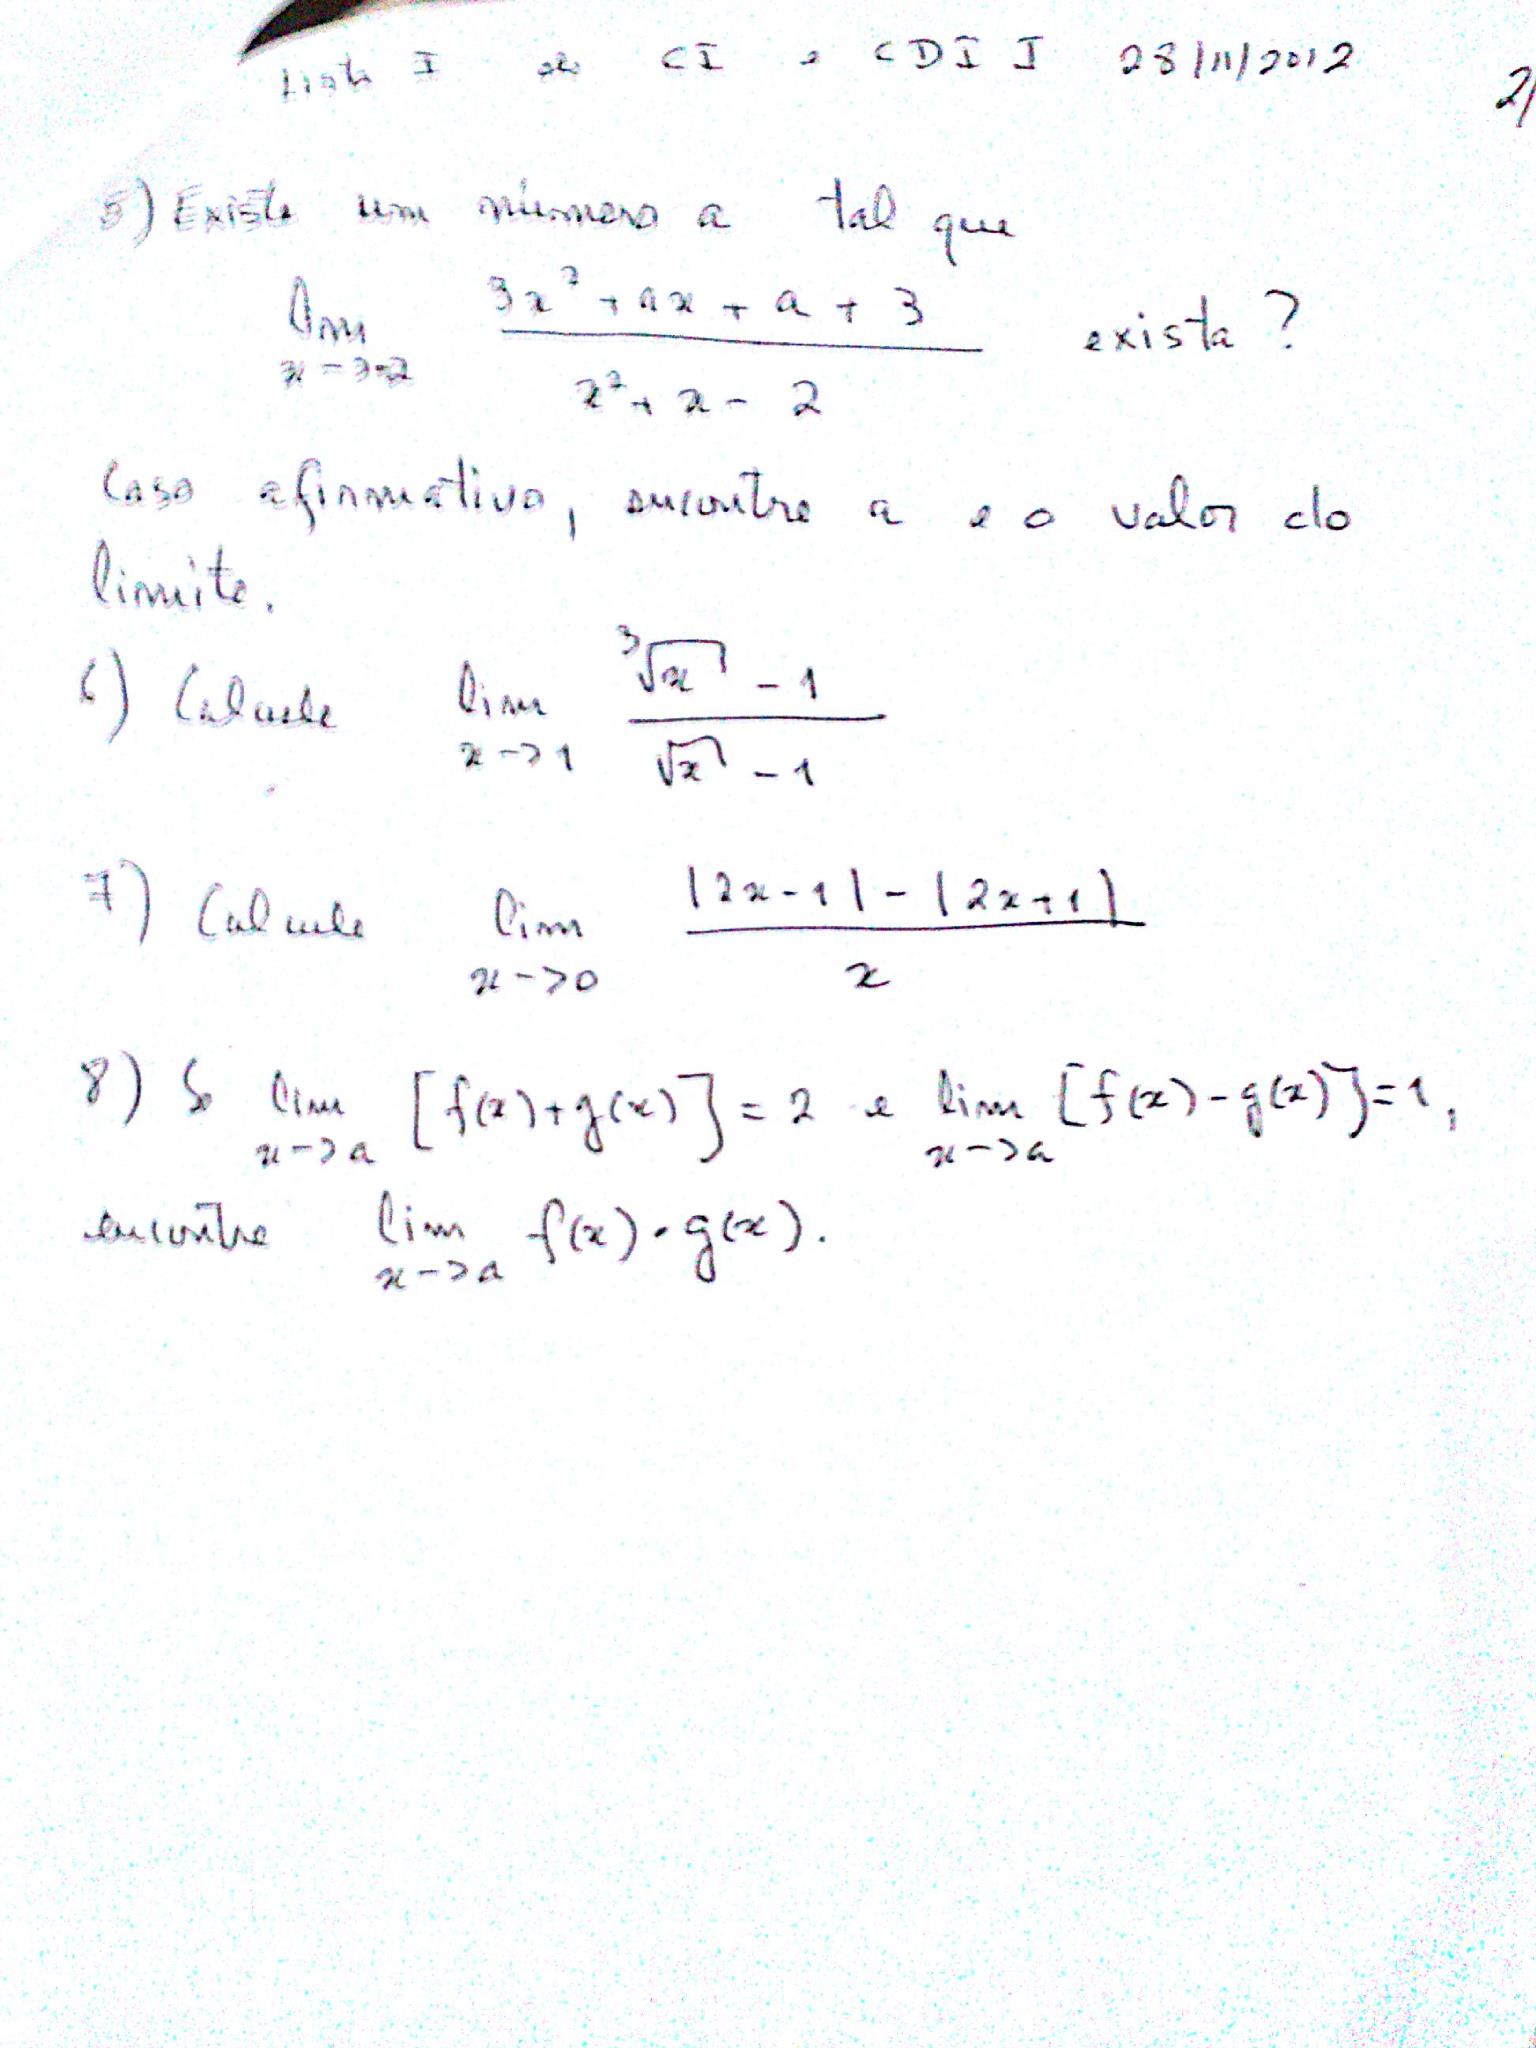 Lista I de CI e CDI I 28/11/2012
2/
5) Existe um número a tal que
lim 3x² + ax + a + 3 exista?
x->-2 x² + x - 2
Caso afirmativo, encontre a e o valor do
limite.
6) Calcule lim ³√x - 1
x->1 √x - 1
7) Calcule lim |2x-1| - |2x+1|
x->0 x
8) Se lim [f(x)+g(x)] = 2 e lim [f(x)-g(x)] = 1,
x->a x->a
encontre lim f(x)·g(x).
x->a